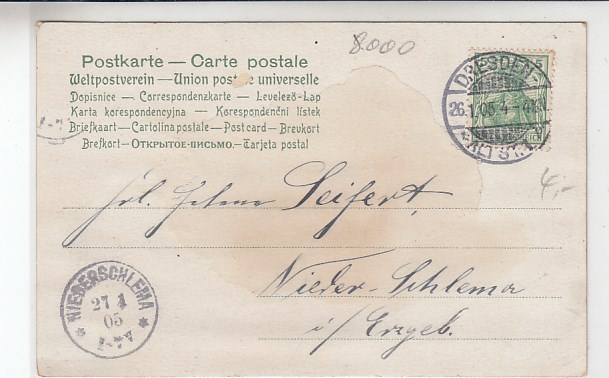 8000
Postkarte — Carte postale
Weltpostverein — Union postale universelle
Dopisnice — Correspondenzkarte — Levelező-Lap
Karta korespondencyjna — Korespondenční lístek
Briefkaart — Cartolina postale — Postcard — Brevkort
Brefkort — ОТКРЫТОЕ-ПИСЬМО. — Tarjeta postal
5
DRESDEN-
26.1.05.4-
ALTST.
4,-
Frl. Helene Seifert,
Nieder-Schlema
i/Erzgeb.
NIEDERSCHLEMA
27 1
05